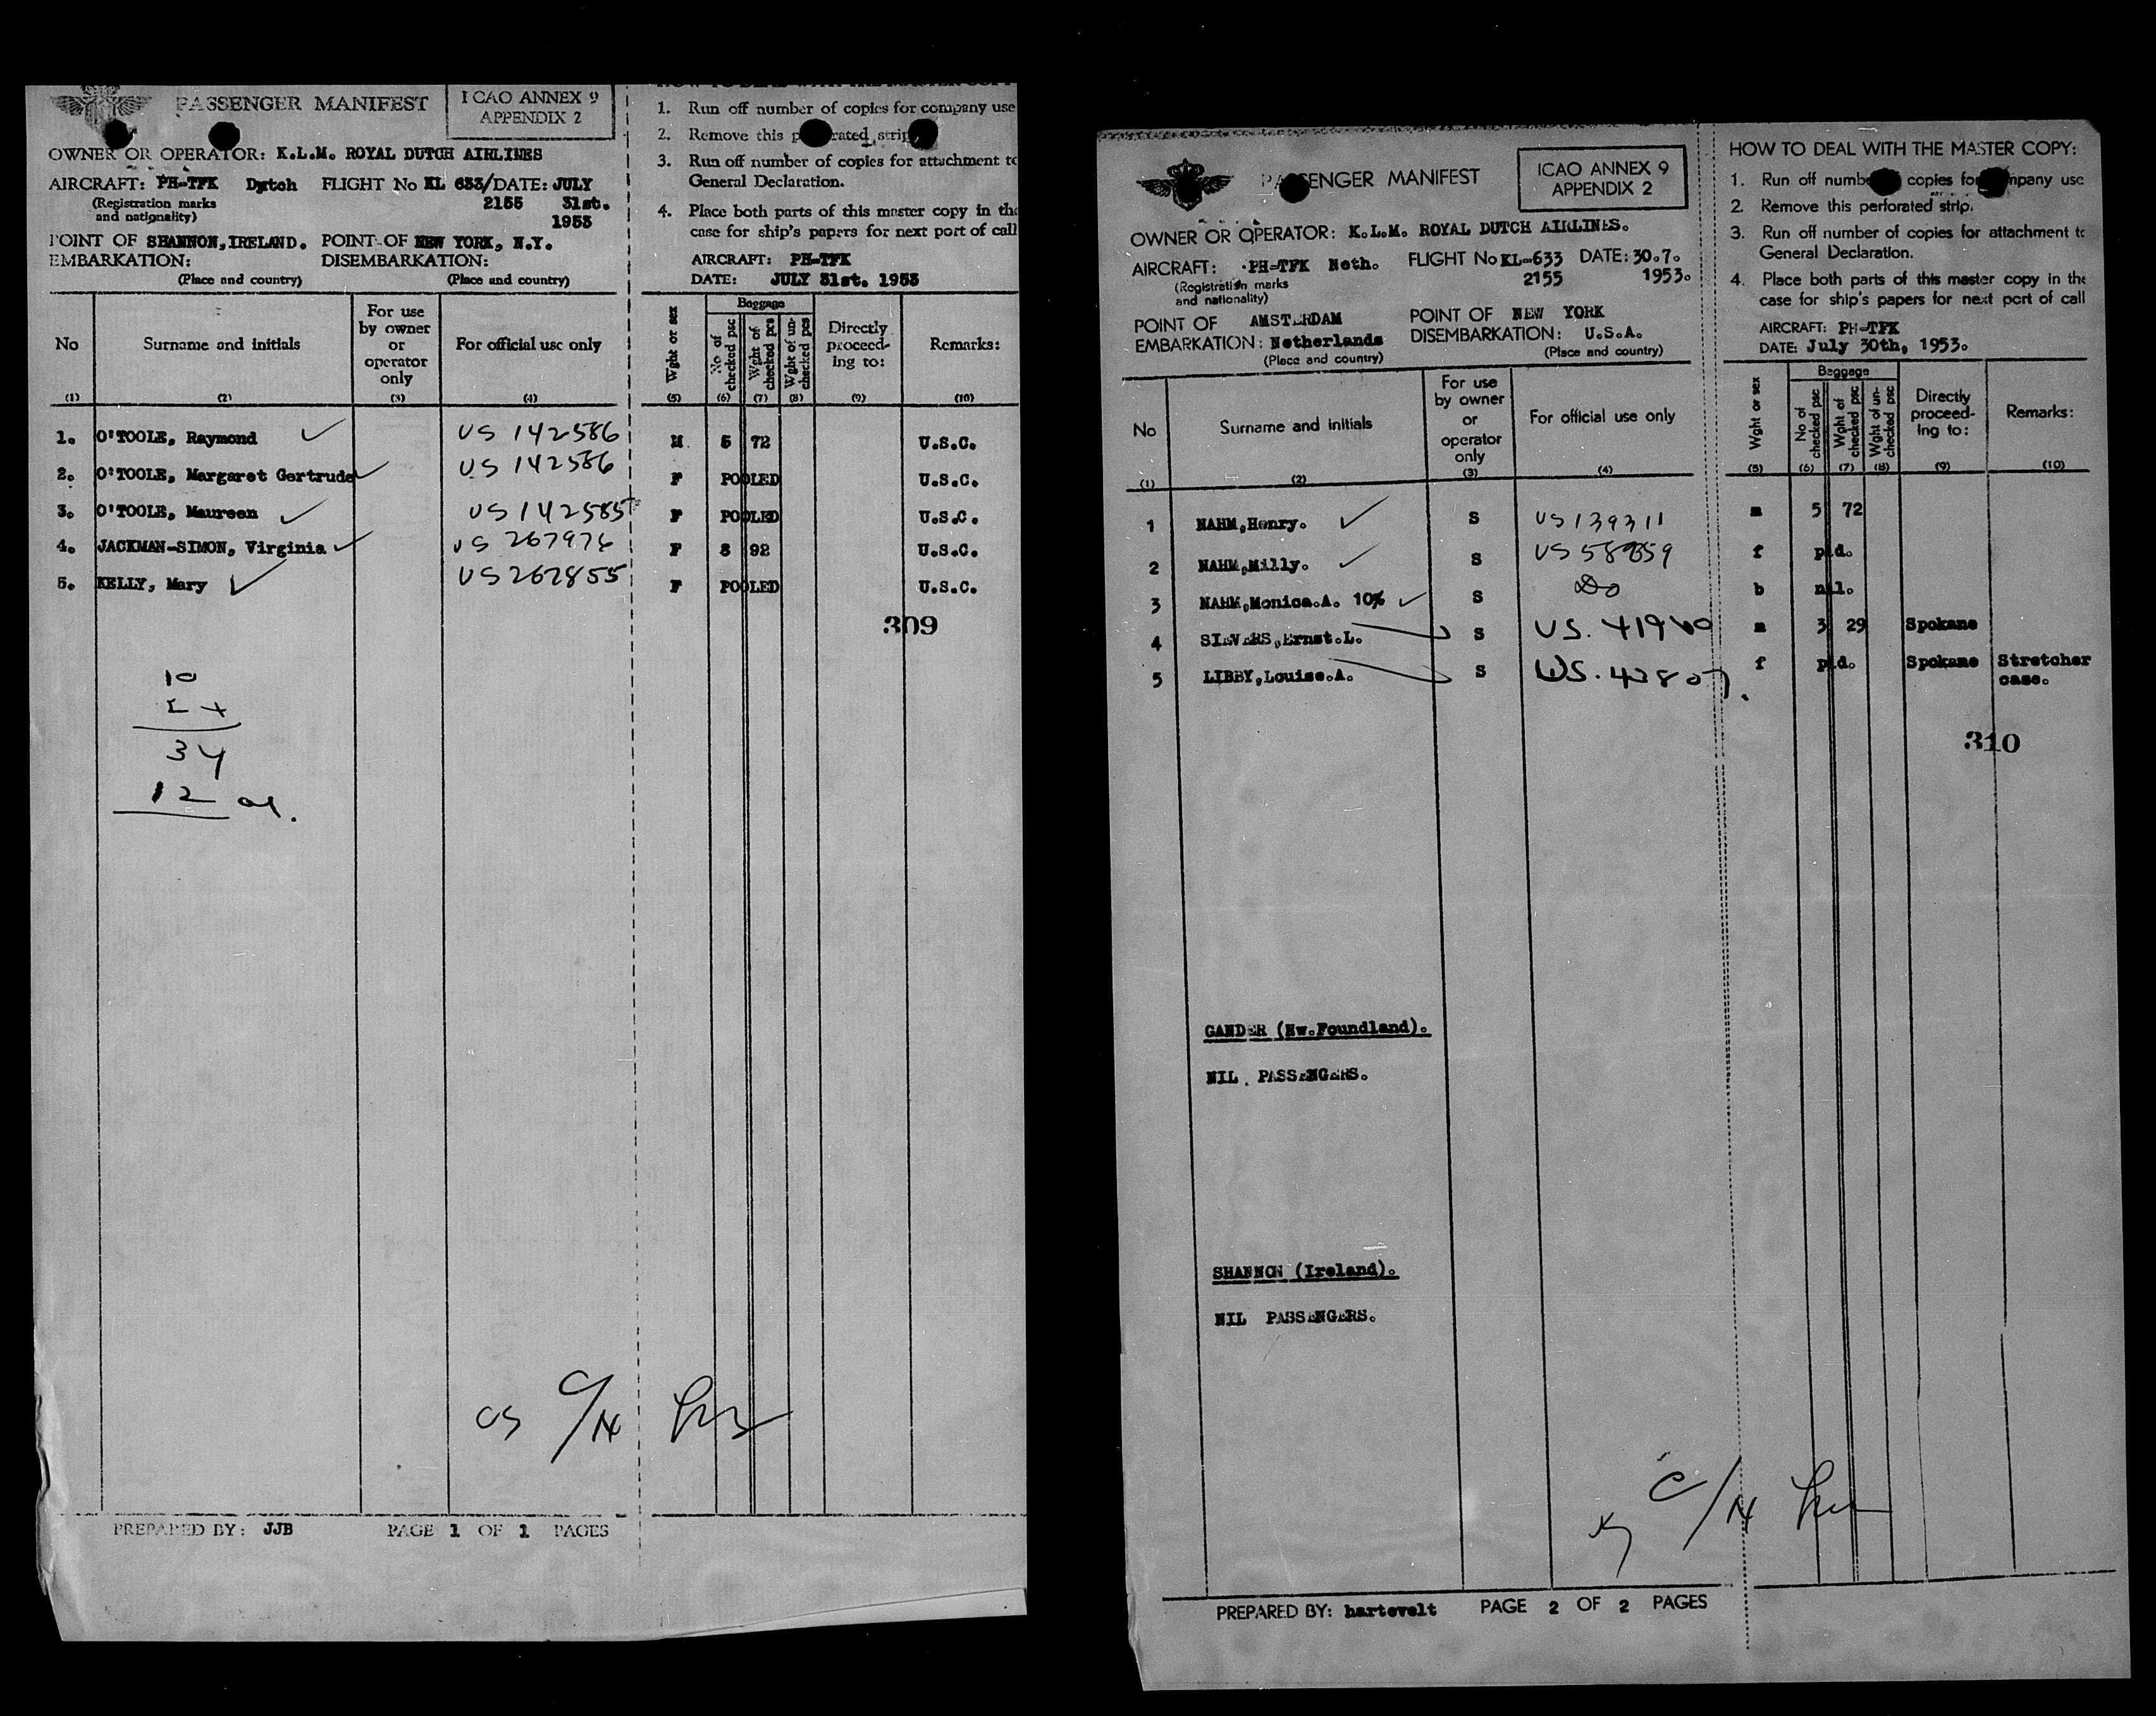 PASSENGER MANIFEST
ICAO ANNEX 9
APPENDIX 2
OWNER OR OPERATOR: K.L.M. ROYAL DUTCH AIRLINES
AIRCRAFT: PH-TFK Dutch FLIGHT No KL 633/ DATE: JULY
(Registration marks 2155 31st.
and nationality) 1953
POINT OF SHANNON, IRELAND. POINT OF NEW YORK, N.Y.
EMBARKATION: DISEMBARKATION:
(Place and country) (Place and country)
1. Run off number of copies for company use
2. Remove this perforated strip.
3. Run off number of copies for attachment to
General Declaration.
4. Place both parts of this master copy in the
case for ship's papers for next port of call
AIRCRAFT: PH-TFK
DATE: JULY 31st. 1953
No Surname and initials For use by owner or operator only For official use only Wght or sex Baggage No of checked psc Wght of checked pcs Wght of un-checked pcs Directly proceed-ing to: Remarks:
(1) (2) (3) (4) (5) (6) (7) (8) (9) (10)
1. O'TOOLE, Raymond US 142586 M 5 72 U.S.C.
2. O'TOOLE, Margaret Gertrude US 142586 F POOLED U.S.C.
3. O'TOOLE, Maureen US 142585 F POOLED U.S.C.
4. JACKMAN-SIMON, Virginia US 267976 F 8 92 U.S.C.
5. KELLY, Mary US 262855 F POOLED U.S.C.
309
10
34
12
US C/N
PREPARED BY: JJB PAGE 1 OF 1 PAGES
PASSENGER MANIFEST
ICAO ANNEX 9
APPENDIX 2
OWNER OR OPERATOR: K.L.M. ROYAL DUTCH AIRLINES.
AIRCRAFT: PH-TFK Neth. FLIGHT No KL-633 DATE: 30.7.
(Registration marks 2155 1953.
and nationality)
POINT OF AMSTERDAM POINT OF NEW YORK
EMBARKATION: Netherlands DISEMBARKATION: U.S.A.
(Place and country) (Place and country)
HOW TO DEAL WITH THE MASTER COPY:
1. Run off number copies for company use
2. Remove this perforated strip.
3. Run off number of copies for attachment to
General Declaration.
4. Place both parts of this master copy in the
case for ship's papers for next port of call
AIRCRAFT: PH-TFK
DATE: July 30th, 1953.
No Surname and initials For use by owner or operator only For official use only Wght or sex Baggage No of checked psc Wght of checked psc Wght of un-checked psc Directly proceed-ing to: Remarks:
(1) (2) (3) (4) (5) (6) (7) (8) (9) (10)
1 NAHM,Henry. S US 139311 m 5 72
2 NAHM,Milly. S US 58859 f pld.
3 NAHM,Monica.A. 10% S Do b nil.
4 SIEVERS,Ernst.L. S US. 41940 m 3 29 Spokane
5 LIBBY,Louise.A. S US. 43807. f pld. Spokane Stretcher
case.
310
GANDER (Nw.Foundland).
NIL PASSENGERS.
SHANNON (Ireland).
NIL PASSENGERS.
C/N
PREPARED BY: hartevelt PAGE 2 OF 2 PAGES